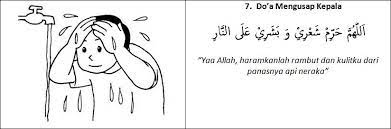 7. Do’a Mengusap Kepala
اَللّٰهُمَّ حَرِّمْ شَعْرِيْ وَ بَشَرِيْ عَلَى النَّارِ
“Yaa Allah, haramkanlah rambut dan kulitku dari
panasnya api neraka”